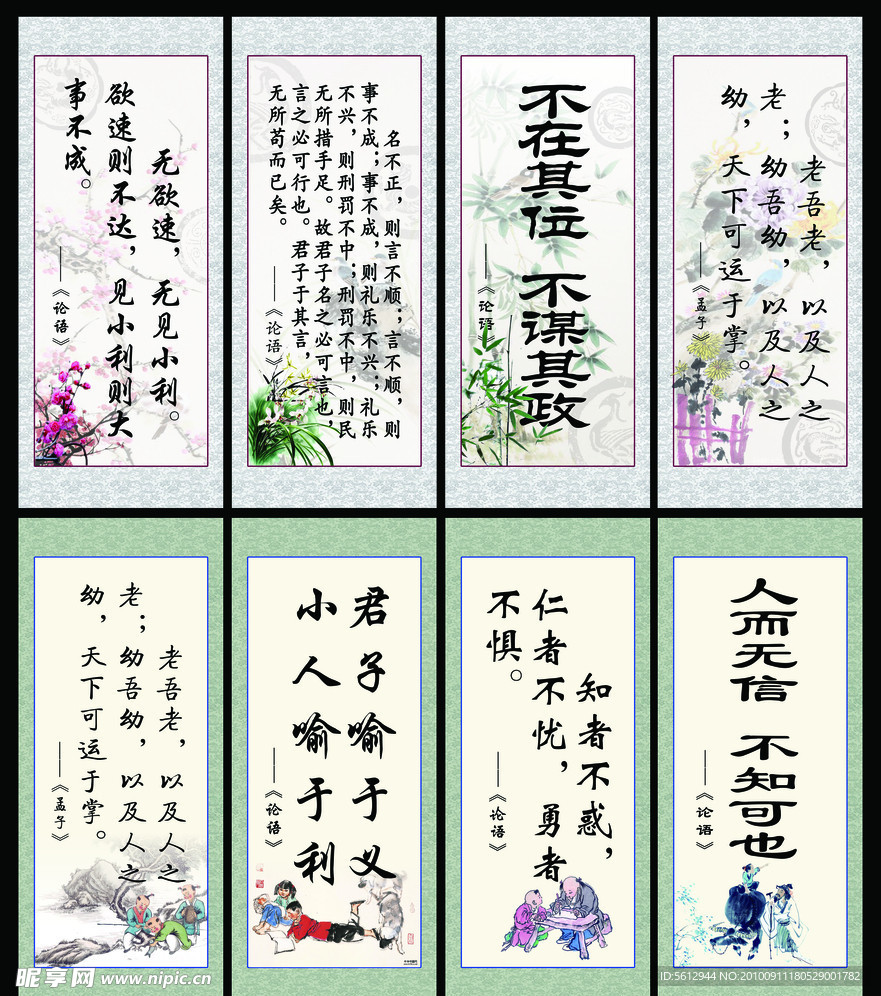 无欲速，无见小利。
欲速则不达，见小利则大
事不成。
——《论语》
名不正，则言不顺；言不顺，则
事不成；事不成，则礼乐不兴；礼乐
不兴，则刑罚不中；刑罚不中，则民
无所措手足。故君子名之必可言也，
言之必可行也。君子于其言，
无所苟而已矣。
——《论语》
不在其位 不谋其政
——《论语》
老吾老，以及人之
老；幼吾幼，以及人之
幼，天下可运于掌。
——《孟子》
老吾老，以及人之
老；幼吾幼，以及人之
幼，天下可运于掌。
——《孟子》
君子喻于义
小人喻于利
——《论语》
知者不惑，
仁者不忧，勇者
不惧。
——《论语》
人而无信 不知可也
——《论语》
昵享网 www.nipic.cn
ID:5612944 NO:20100911180529001782